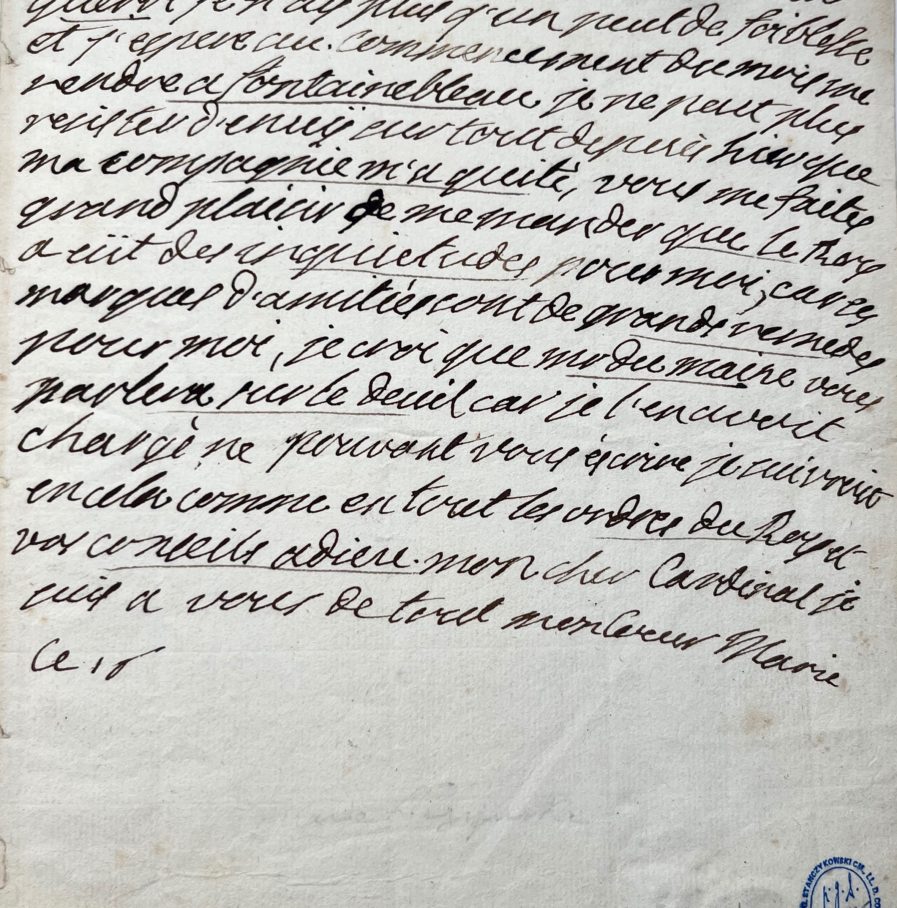 guerri je n'ay plus q'un peut de foiblesse
et j'espere au commencement du mois me
rendre a fontainebleau, je ne peut plus
resister d'enuij surtout depuis hier que
ma compagnie m'a quité, vous me faites
grand plaisir de me mander que le Roy
a eüt des inquietudes pour moi, car ces
marques d'amitiés sont de grands remedes
pour moi, je croi que mr du maine vous
parlera sur le deuil car je l'en avoit
chargé ne pouvant vous écrire je suivrois
en cela comme en tout les ordres du Roy et
vos conseils adieu. mon cher Cardinal je
suis a vous de tout mon coeur Marie
ce 18
STANCZYKOWSKI CM. LL. D.